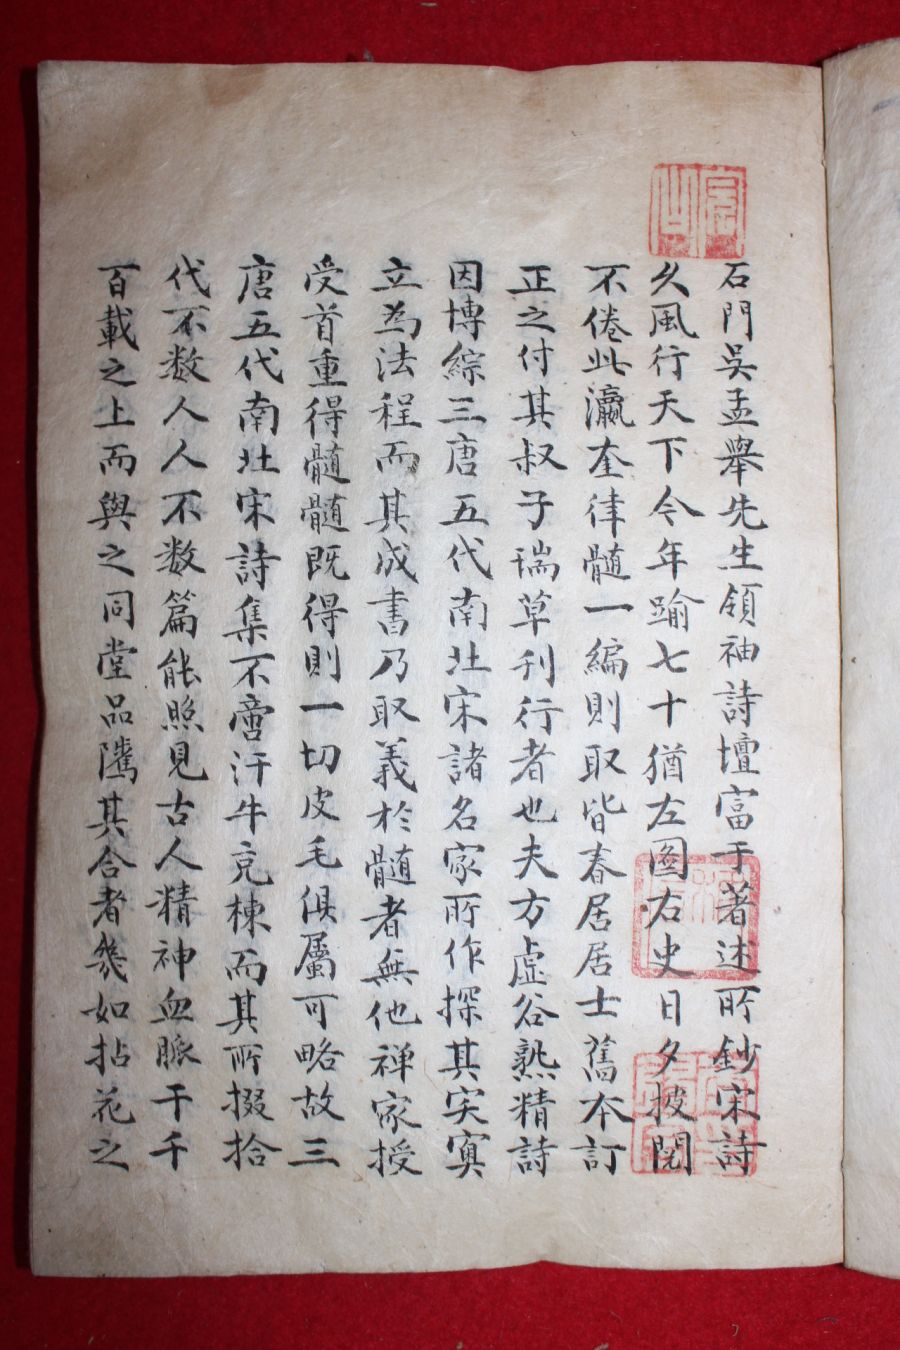 石門吳孟舉先生領袖詩壇富于著述所鈔宋詩
久風行天下今年踰七十猶左圖右史日夕披閱
不倦此瀛奎律髓一編則取皆春居居士舊本訂
正之付其叔子瑞草刊行者也夫方虛谷熟精詩
因博綜三唐五代南北宋諸名家所作探其突寞
立為法程而其成書乃取義於髓者無他禅家授
受首重得髓髓既得則一切皮毛俱屬可略故三
唐五代南北宋詩集不啻汗牛充棟而其所掇拾
代不数人人不数篇能照見古人精神血脈于千
百載之上而與之同堂品隲其合者幾如拈花之